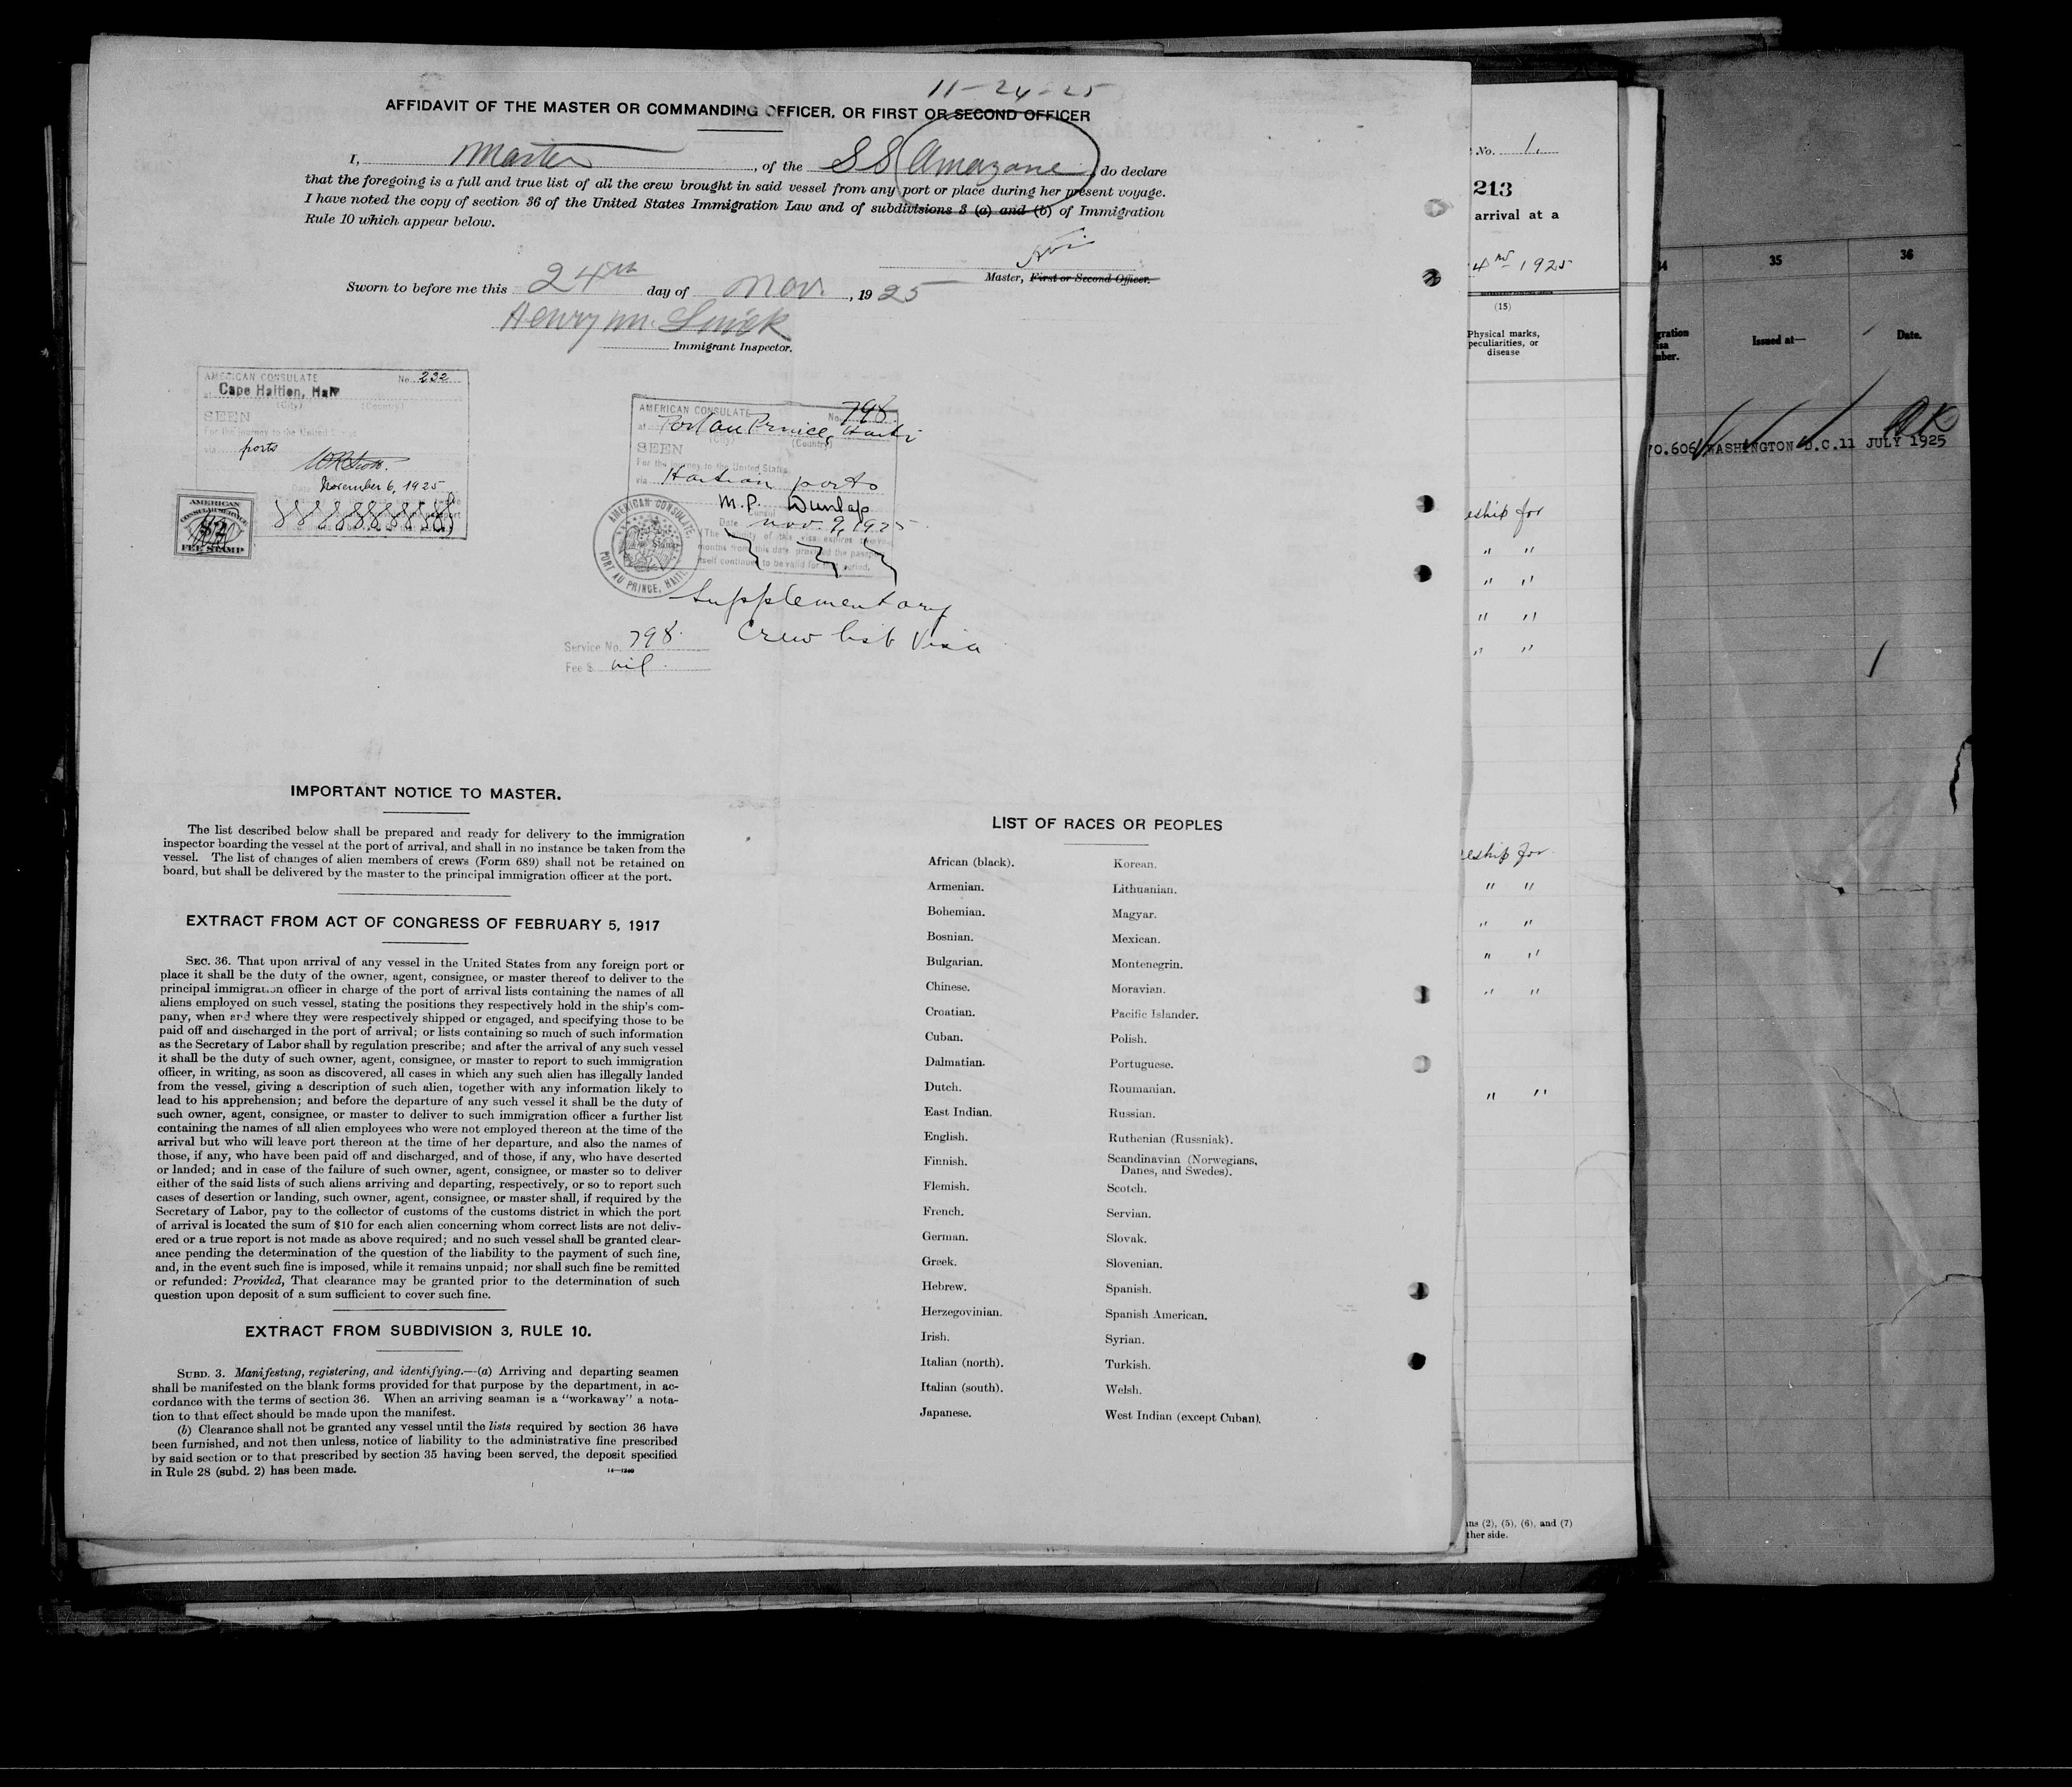 11-24-25
AFFIDAVIT OF THE MASTER OR COMMANDING OFFICER, OR FIRST OR SECOND OFFICER
I, Master, of the SS Amazone, do declare
that the foregoing is a full and true list of all the crew brought in said vessel from any port or place during her present voyage.
I have noted the copy of section 36 of the United States Immigration Law and of subdivisions 3 (a) and (b) of Immigration
Rule 10 which appear below.
Master, First or Second Officer.
Sworn to before me this 24th day of Nov., 1925
Henry M.
Immigrant Inspector.
AMERICAN CONSULATE No. 232
at Cape Haitien, Haiti
(City) (Country)
SEEN
For the journey to the United States
via ports
November 6, 1925
AMERICAN
CONSULAR SERVICE
FEE STAMP
AMERICAN CONSULATE No. 798
at Port au Prince, Haiti
(City) (Country)
SEEN
For the journey to the United States
via Haitian ports
M.P. Dunlap
Consul
Date Nov. 9, 1925
The validity of this visa expires twelve
months from this date provided the passport
itself continues to be valid for that period.
AMERICAN CONSULATE,
PORT AU PRINCE, HAITI
Supplementary
Crew list Visa
Service No. 798.
Fee $ nil.
IMPORTANT NOTICE TO MASTER.
The list described below shall be prepared and ready for delivery to the immigration
inspector boarding the vessel at the port of arrival, and shall in no instance be taken from the
vessel. The list of changes of alien members of crews (Form 689) shall not be retained on
board, but shall be delivered by the master to the principal immigration officer at the port.
EXTRACT FROM ACT OF CONGRESS OF FEBRUARY 5, 1917
SEC. 36. That upon arrival of any vessel in the United States from any foreign port or
place it shall be the duty of the owner, agent, consignee, or master thereof to deliver to the
principal immigration officer in charge of the port of arrival lists containing the names of all
aliens employed on such vessel, stating the positions they respectively hold in the ship's com-
pany, when and where they were respectively shipped or engaged, and specifying those to be
paid off and discharged in the port of arrival; or lists containing so much of such information
as the Secretary of Labor shall by regulation prescribe; and after the arrival of any such vessel
it shall be the duty of such owner, agent, consignee, or master to report to such immigration
officer, in writing, as soon as discovered, all cases in which any such alien has illegally landed
from the vessel, giving a description of such alien, together with any information likely to
lead to his apprehension; and before the departure of any such vessel it shall be the duty of
such owner, agent, consignee, or master to deliver to such immigration officer a further list
containing the names of all alien employees who were not employed thereon at the time of the
arrival but who will leave port thereon at the time of her departure, and also the names of
those, if any, who have been paid off and discharged, and of those, if any, who have deserted
or landed; and in case of the failure of such owner, agent, consignee, or master so to deliver
either of the said lists of such aliens arriving and departing, respectively, or so to report such
cases of desertion or landing, such owner, agent, consignee, or master shall, if required by the
Secretary of Labor, pay to the collector of customs of the customs district in which the port
of arrival is located the sum of $10 for each alien concerning whom correct lists are not deliv-
ered or a true report is not made as above required; and no such vessel shall be granted clear-
ance pending the determination of the question of the liability to the payment of such fine,
and, in the event such fine is imposed, while it remains unpaid; nor shall such fine be remitted
or refunded: Provided, That clearance may be granted prior to the determination of such
question upon deposit of a sum sufficient to cover such fine.
EXTRACT FROM SUBDIVISION 3, RULE 10.
SUBD. 3. Manifesting, registering, and identifying.—(a) Arriving and departing seamen
shall be manifested on the blank forms provided for that purpose by the department, in ac-
cordance with the terms of section 36. When an arriving seaman is a "workaway" a nota-
tion to that effect should be made upon the manifest.
(b) Clearance shall not be granted any vessel until the lists required by section 36 have
been furnished, and not then unless, notice of liability to the administrative fine prescribed
by said section or to that prescribed by section 35 having been served, the deposit specified
in Rule 28 (subd. 2) has been made.
14—1240
LIST OF RACES OR PEOPLES
African (black). Korean.
Armenian. Lithuanian.
Bohemian. Magyar.
Bosnian. Mexican.
Bulgarian. Montenegrin.
Chinese. Moravian.
Croatian. Pacific Islander.
Cuban. Polish.
Dalmatian. Portuguese.
Dutch. Roumanian.
East Indian. Russian.
English. Ruthenian (Russniak).
Finnish. Scandinavian (Norwegians,
Danes, and Swedes).
Flemish. Scotch.
French. Servian.
German. Slovak.
Greek. Slovenian.
Hebrew. Spanish.
Herzegovinian. Spanish American.
Irish. Syrian.
Italian (north). Turkish.
Italian (south). Welsh.
Japanese. West Indian (except Cuban).
No. 1.
213
arrival at a
1925
(15)
Physical marks,
peculiarities, or
disease
eship for
" "
" "
" "
" "
eship for
" "
" "
" "
" "
" "
ns (2), (5), (6), and (7)
ther side.
34 35 36
gration
isa
mber.
Issued at— Date.
OK
70.606 WASHINGTON D.C. 11 JULY 1925